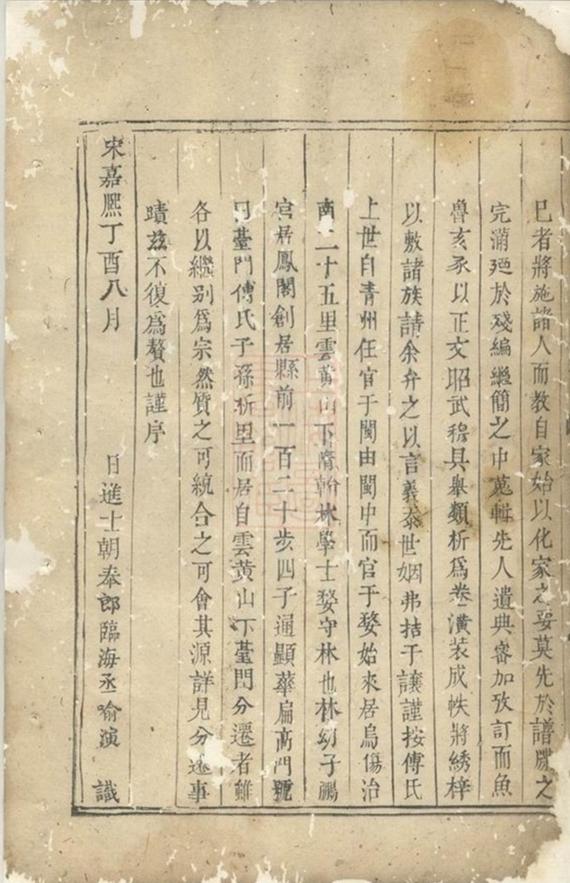 已者將施諸人而教自家始以化家之要莫先於譜牒之
完滿廼於殘編繼簡之中蒐輯先人遺典審加攷訂而魚
魯亥豕以正文昭武穆具舉類析爲卷潢裝成帙將綉梓
以敷諸族請余弁之以言義泰世姻弗拮于讓謹按傅氏
上世自青州任官于閩由閩中而官于婺始來居烏傷治
南二十五里雲黄山下隋翰林學士婺守林也林幼子鵬
宫居鳳閣創居縣前一百二十步四子通顯華扁高門號
曰臺門傅氏子孫析里而居自雲黄山下臺門分遷者雖
各以繼别爲宗然質之可統合之可會其源詳見分遷事
蹟兹不復爲贅也謹序
宋嘉熙丁酉八月 日進士朝奉郎臨海丞喻演 識